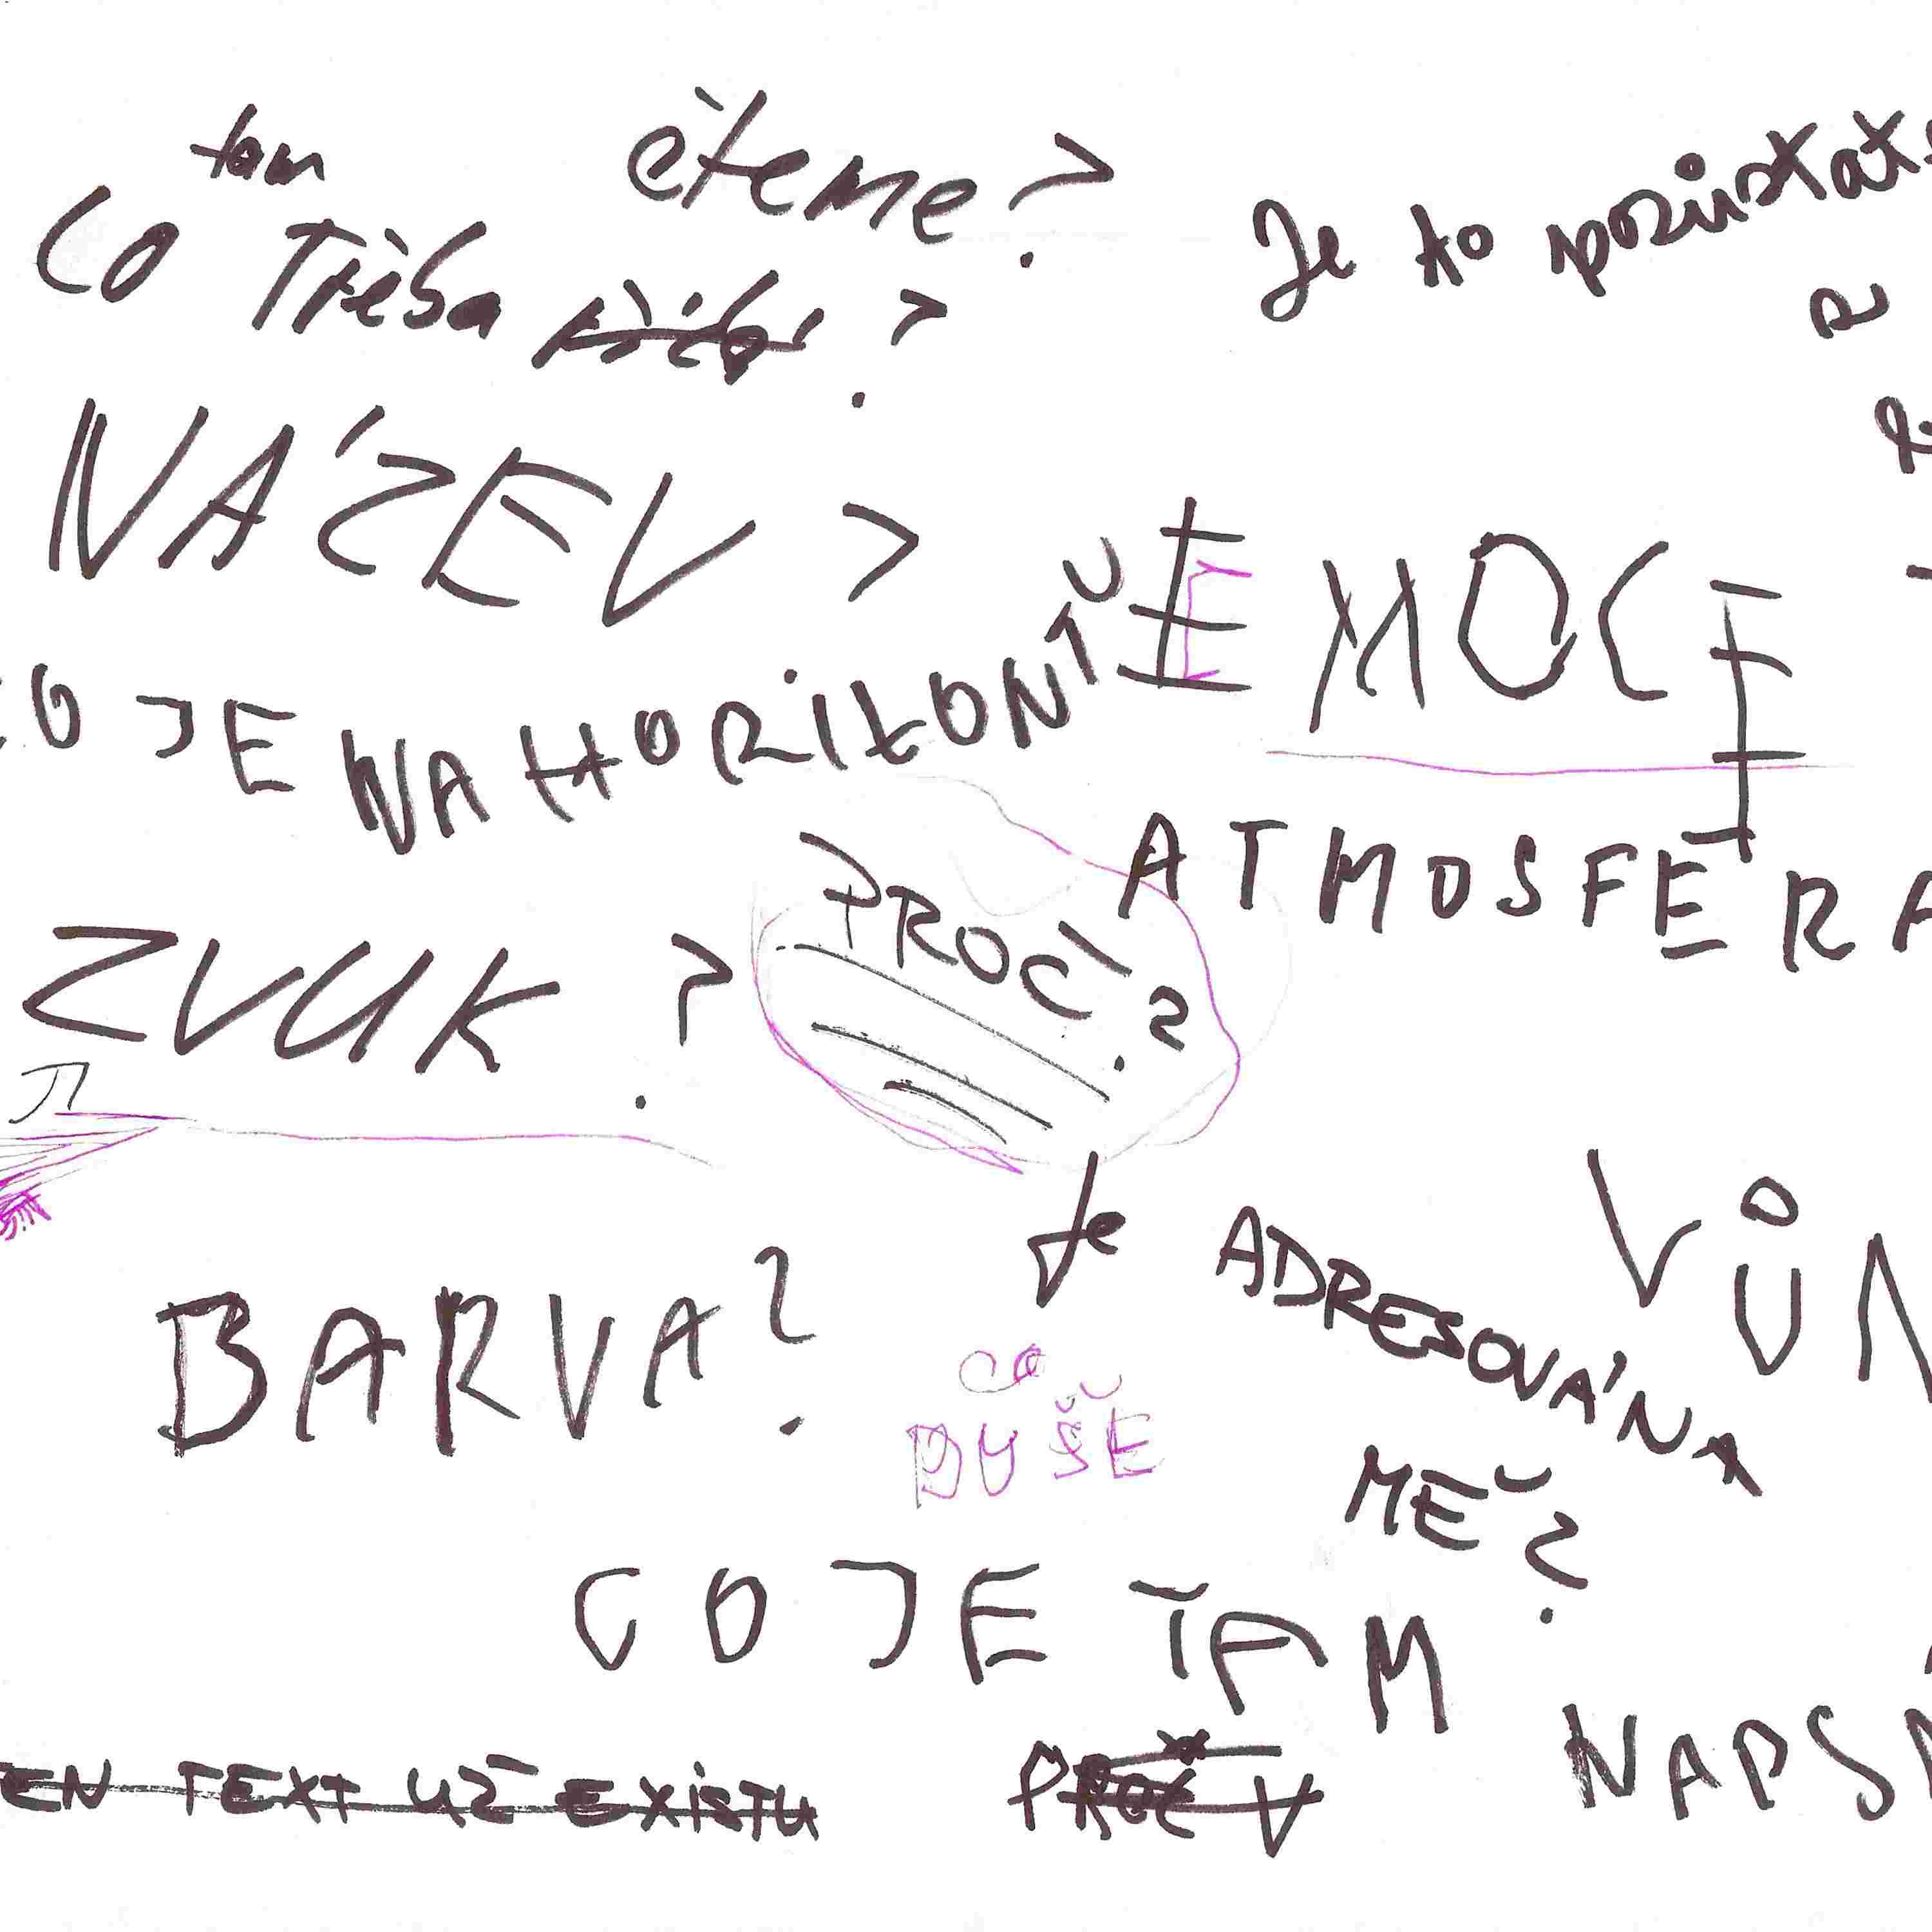 tam čteme?
Co Třeba ?
Je to pozůstat
NÁZEV >
EMOCE
CO JE NA HORIZONTU
ATMOSFÉRA
PROČ?
ZVUK ?
VŮN
Je ADRESOVÁNA
MĚ?
BARVA?
CO
DUŠE
CO JE TAM
NAPSÁ
EN TEXT UŽ EXISTU
PROČ V